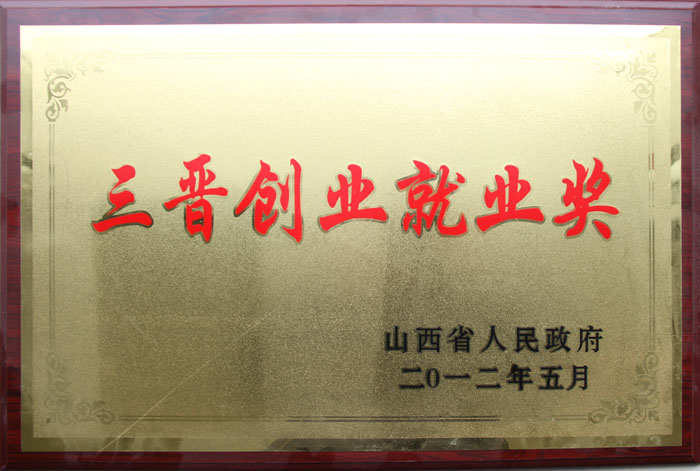 三晋创业就业奖
山西省人民政府
二0一二年五月